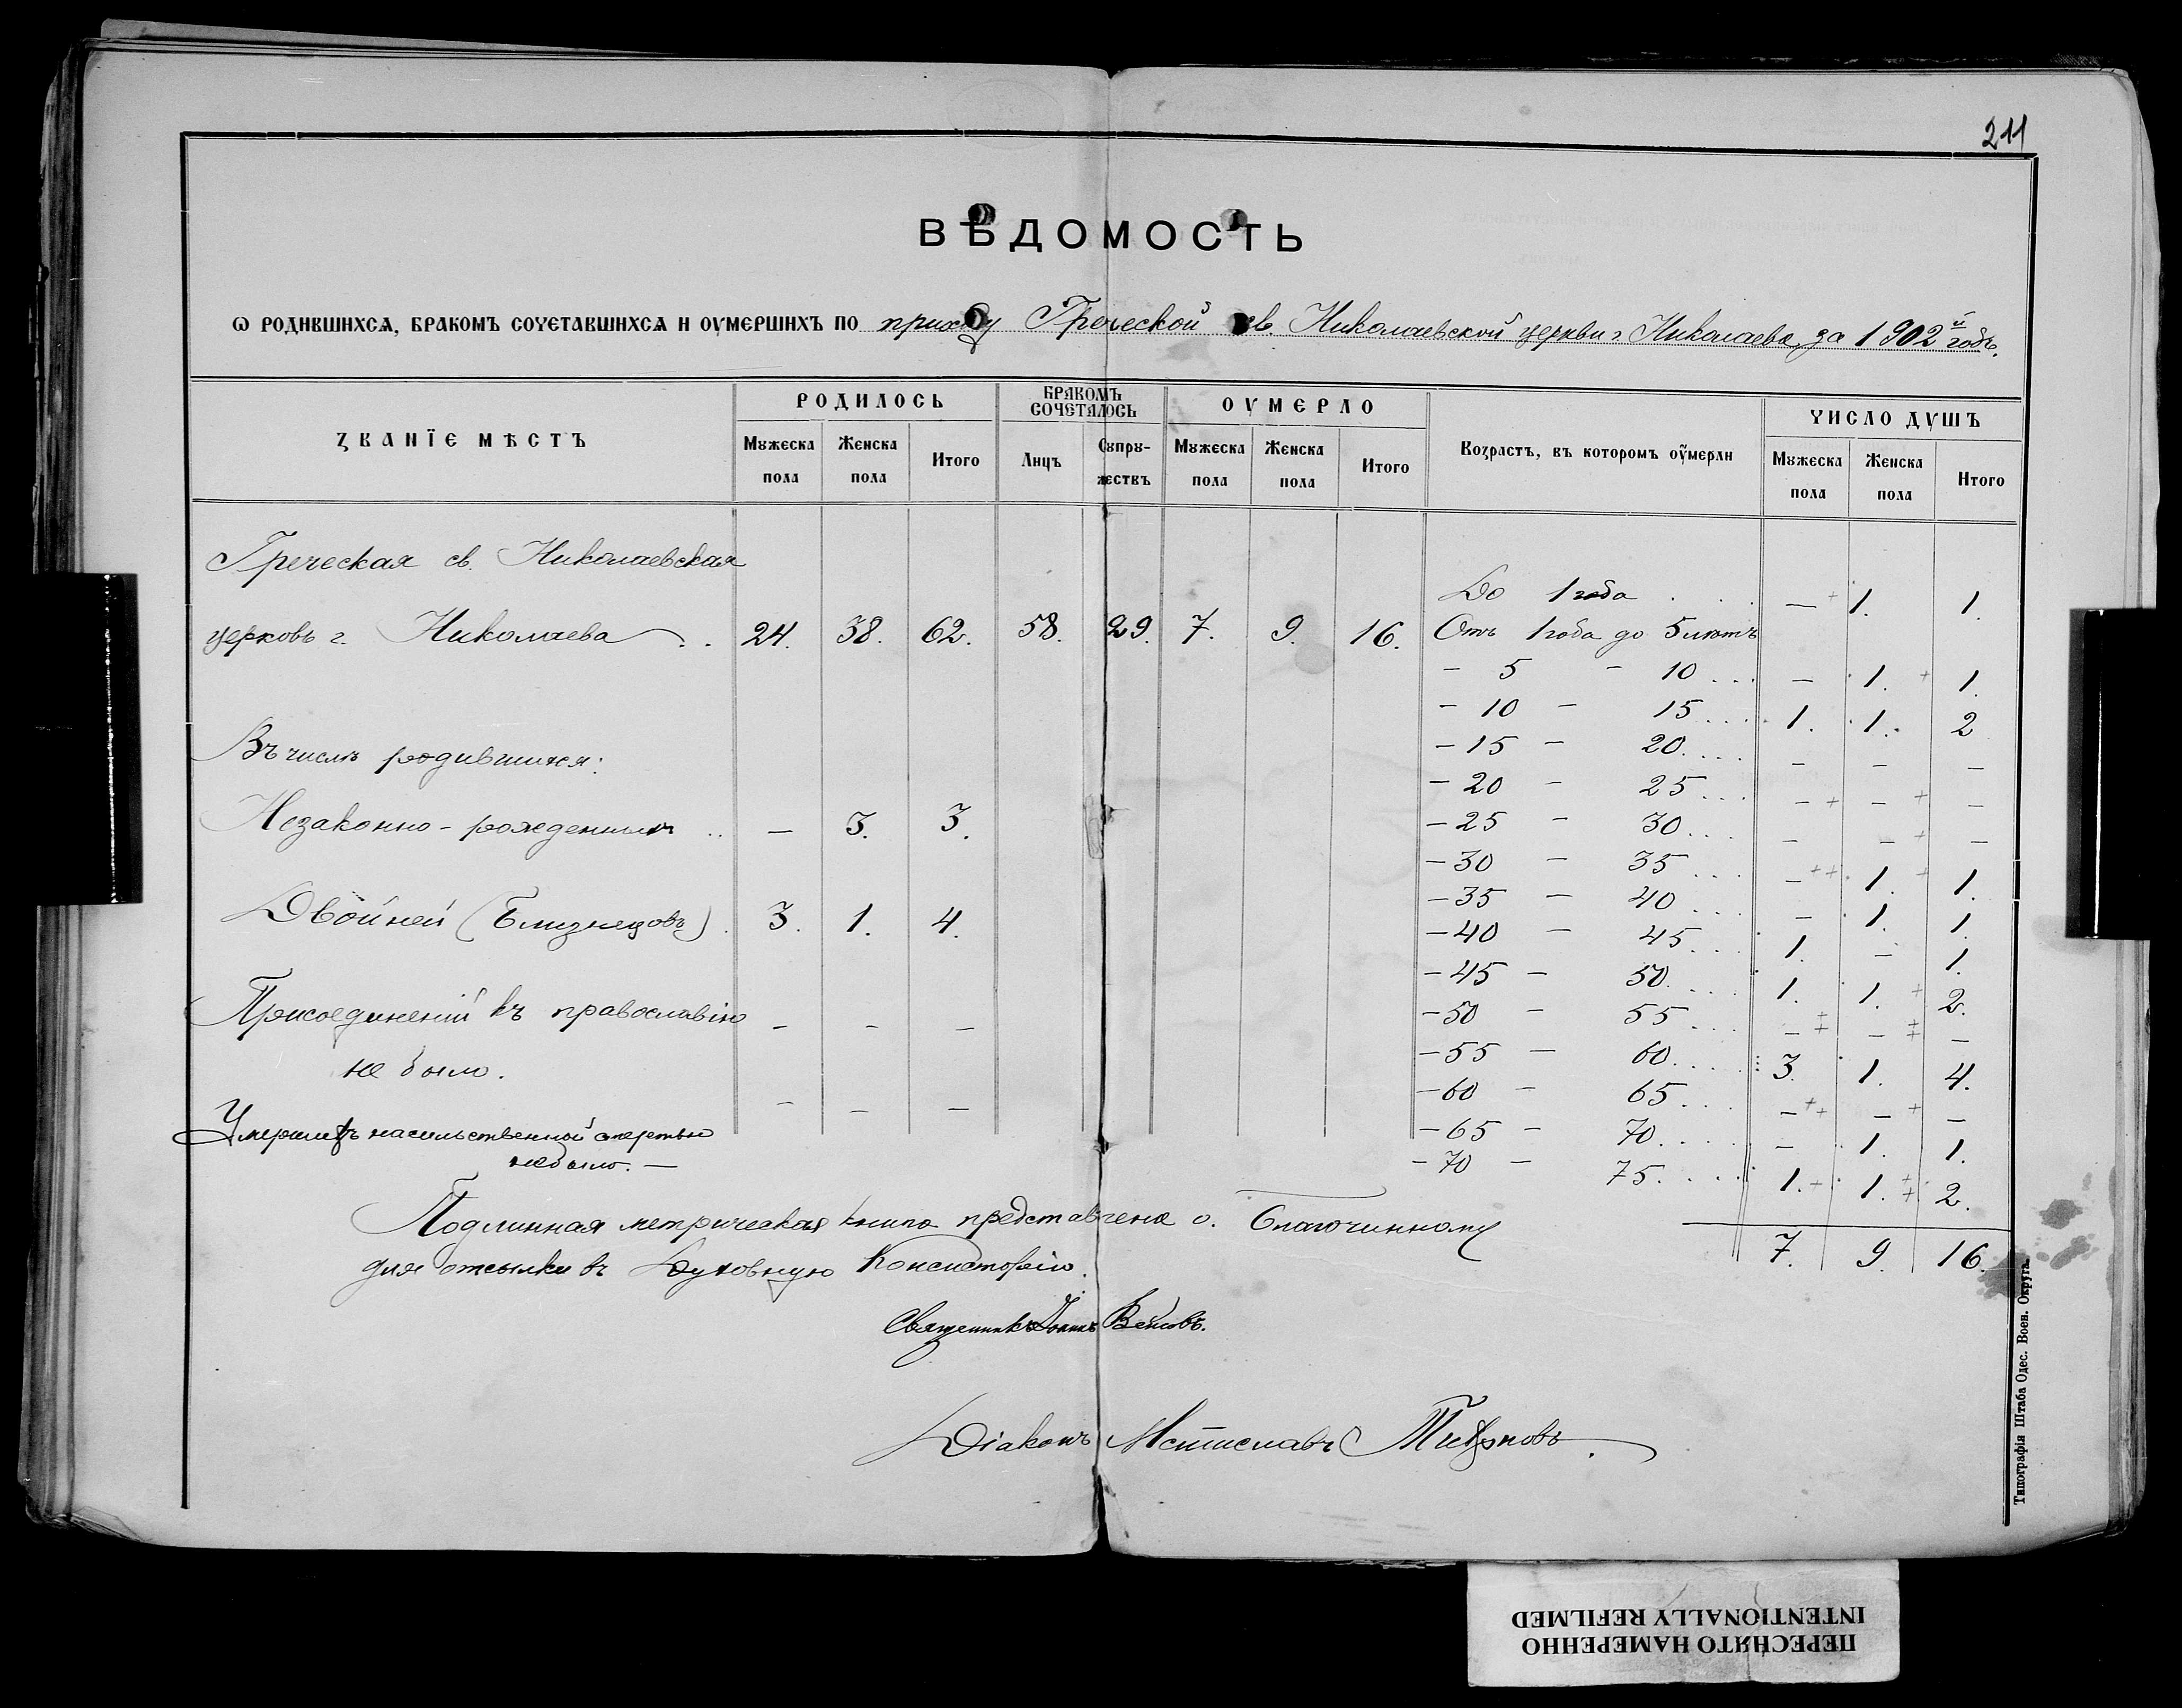 211
ВѢДОМОСТЬ
Ѡ РОДИВШИХСѦ, БРАКОМЪ СОЧЕТАВШИХСѦ И ОУМЕРШИХЪ ПО приходу Греческой св. Николаевской церкви г. Николаева, за 1902й годъ.
ЗВАНЇЕ МѢСТЪ
РОДИЛОСЬ
Мꙋжеска пола
Женска пола
Итого
БРАКОМЪ СОЧЕТАЛОСЬ
Лицъ
Сꙋпрꙋ-жествъ
ОУМЕРЛО
Мꙋжеска пола
Женска пола
Итого
Возрастъ, въ которомъ оумерли
ЧИСЛО ДУШЪ
Мꙋжеска пола
Женска пола
Итого
Греческая св. Николаевская
церковь г. Николаева . . 24. 38. 62. 58. 29. 7. 9. 16.
Въ числѣ родившихся:
Незаконно-рожденныхъ .. — 3. 3.
Двойней (Близнецовъ) . 3. 1. 4.
Присоединеній къ православію — — —
не было.
Умершихъ насильственной смертью — — —
не было. —
До 1 года . . . . — 1. 1.
Отъ 1 года до 5 лѣтъ
— 5 — 10 . . . — 1. 1.
— 10 — 15 . . . . 1. 1. 2
— 15 — 20. . . . — — —
— 20 — 25 . . . — — —
— 25 — 30 . . . — — —
— 30 — 35 . . . — 1. 1.
— 35 — 40 . . . — 1. 1.
— 40 — 45 . . . 1. — 1.
— 45 — 50. . . . 1. 1. 2.
— 50 — 55 . . . — — —
— 55 — 60 . . . . 3. 1. 4.
— 60 — 65 . . . — — —
— 65 — 70 . . . . — 1. 1.
— 70 — 75 . . . . 1. 1. 2.
7. 9. 16.
Подлинная метрическая книга представлена о. Благочинному
для отсылки въ Духовную Консисторію.
Священникъ Іоаннъ
Діаконъ Мстиславъ
Типографія Штаба Одес. Воен. Округа.
ПЕРЕСНЯТО НАМЕРЕННО
INTENTIONALLY REFILMED